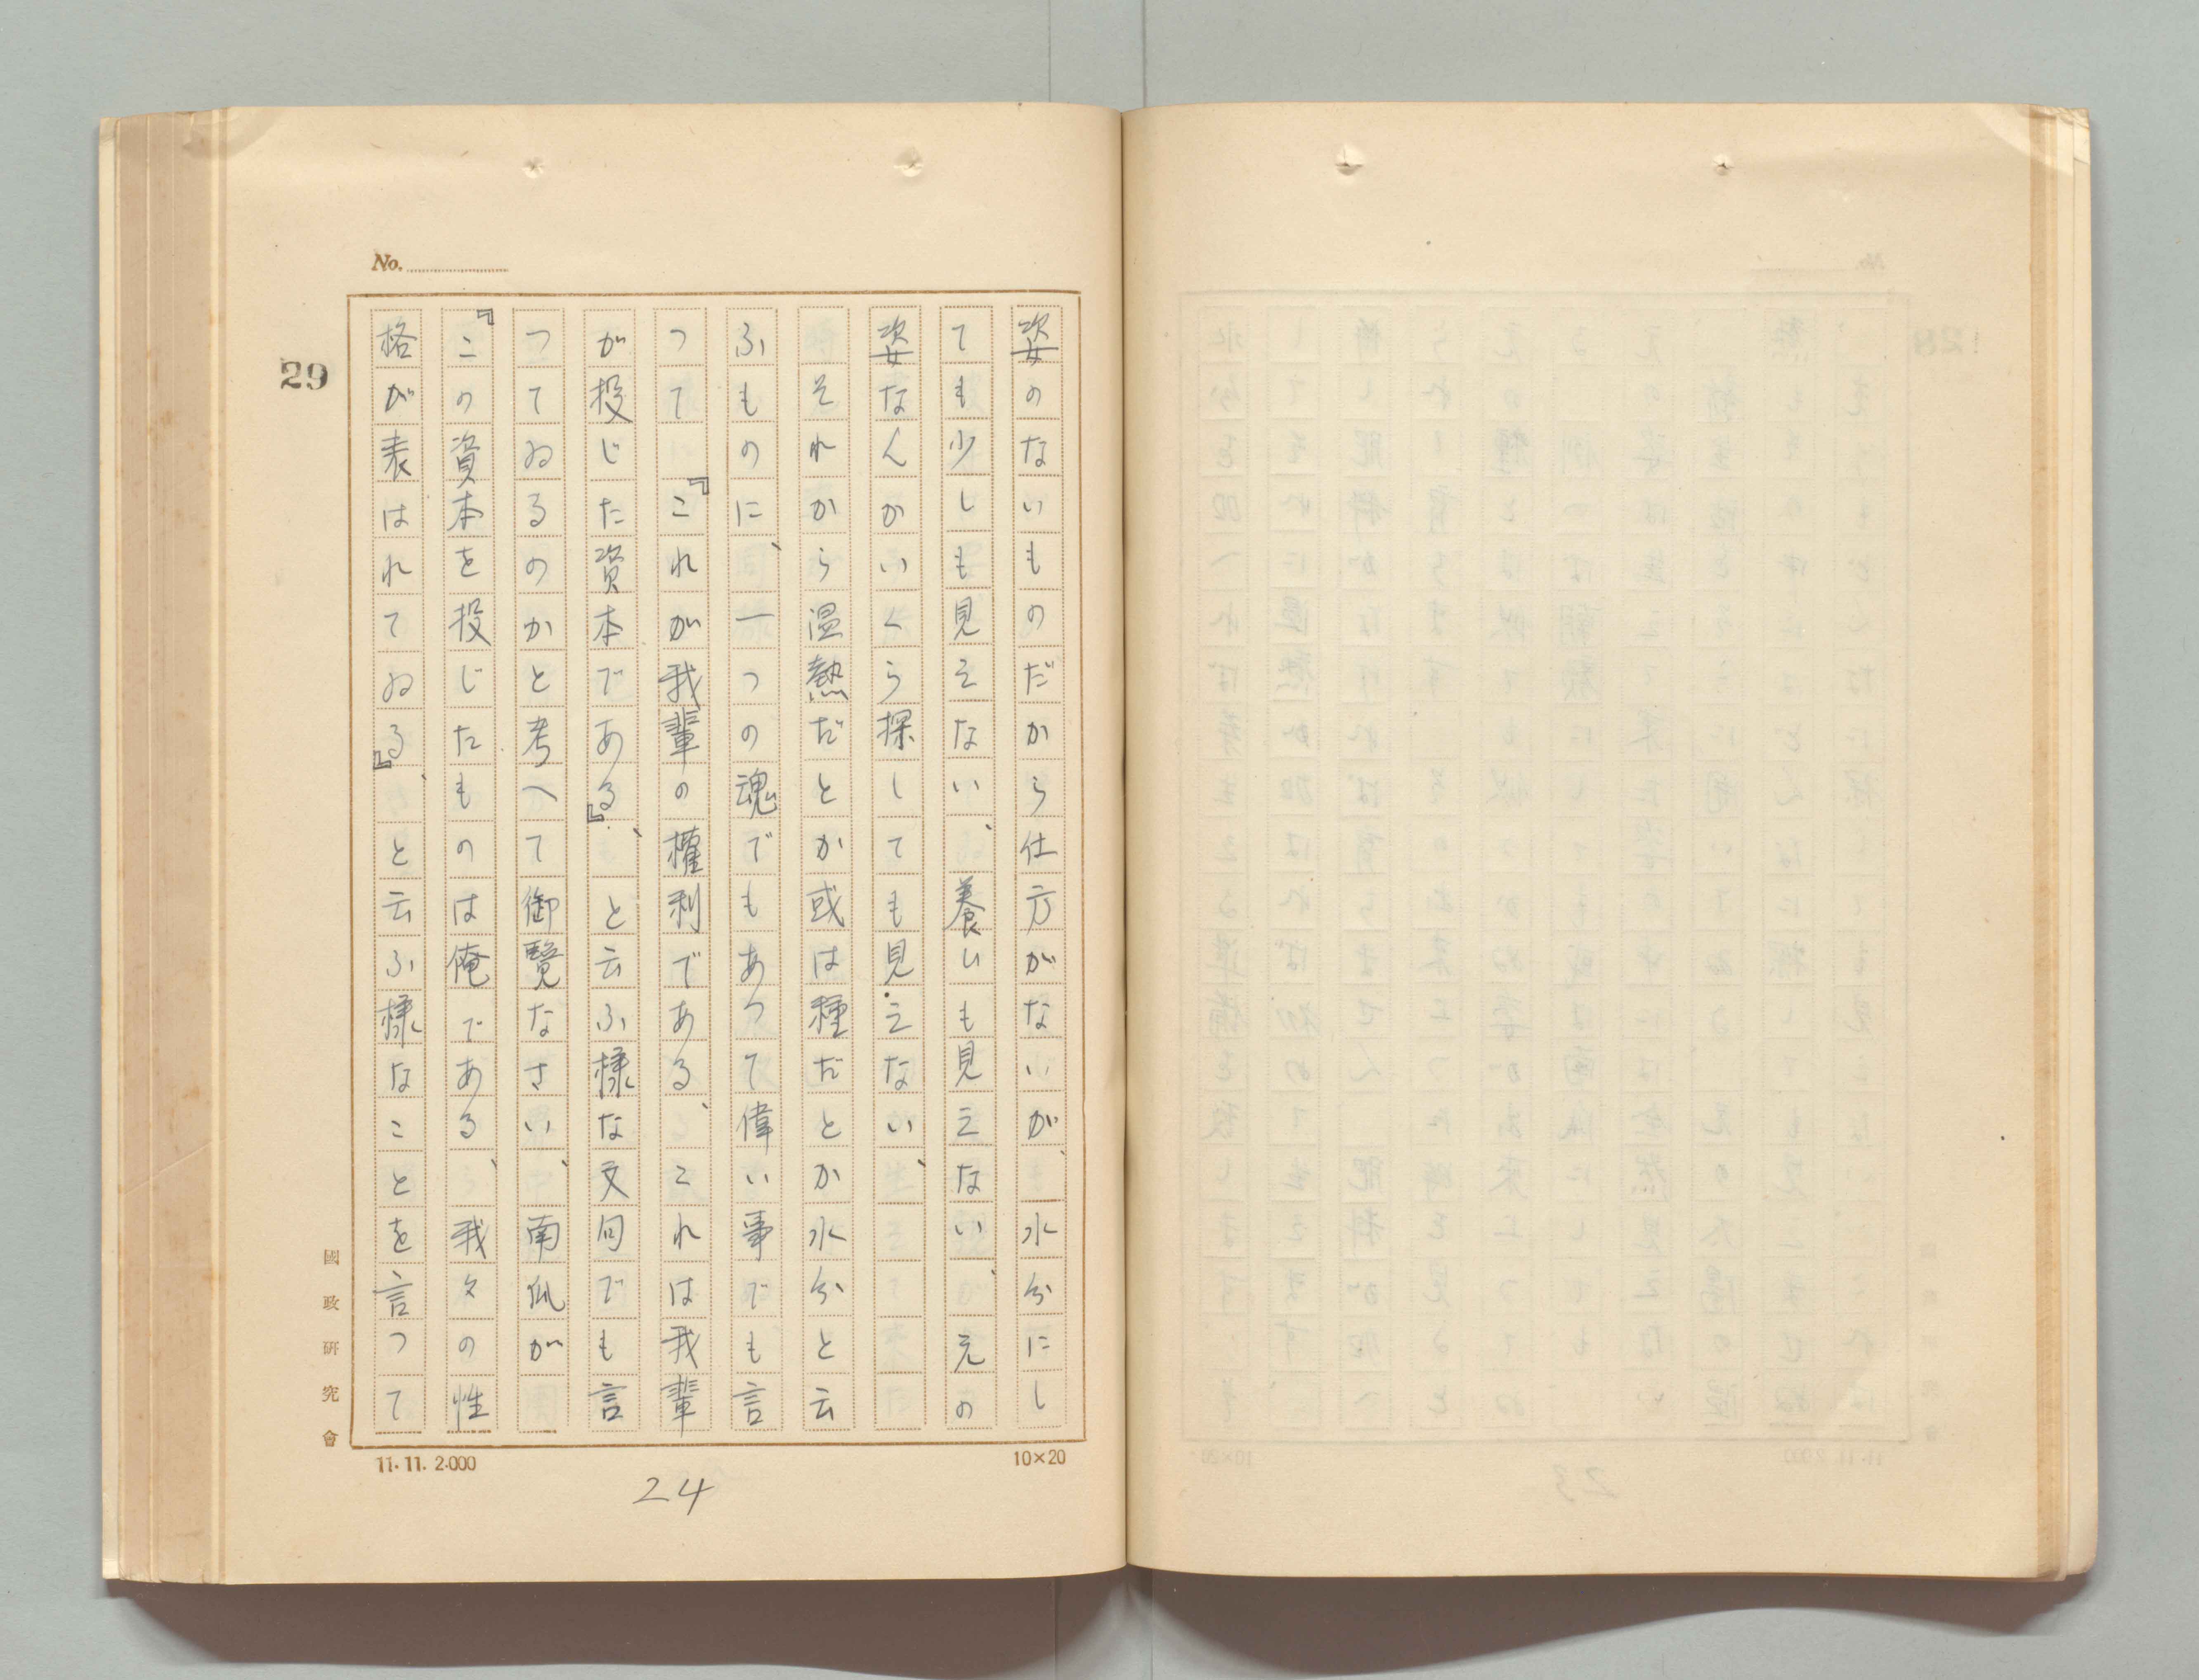 No.
29
姿のないものだから仕方がないが、水分にし
ても少しも見えない、養ひも見えない、元の
姿なんかいくら探しても見えない、
それから温熱だとか或は種だとか水分と云
ふものに、一つの魂でもあつて偉い事でも言
つて『これが我輩の権利である、これは我輩
が投じた資本である』、と云ふ様な文句でも言
つてゐるのかと考へて御覧なさい、南瓜が
『この資本を投じたものは俺である、我々の性
格が表はれてゐる』、と云ふ様なことを言つて
國政研究會
11.11. 2.000
10×20
24